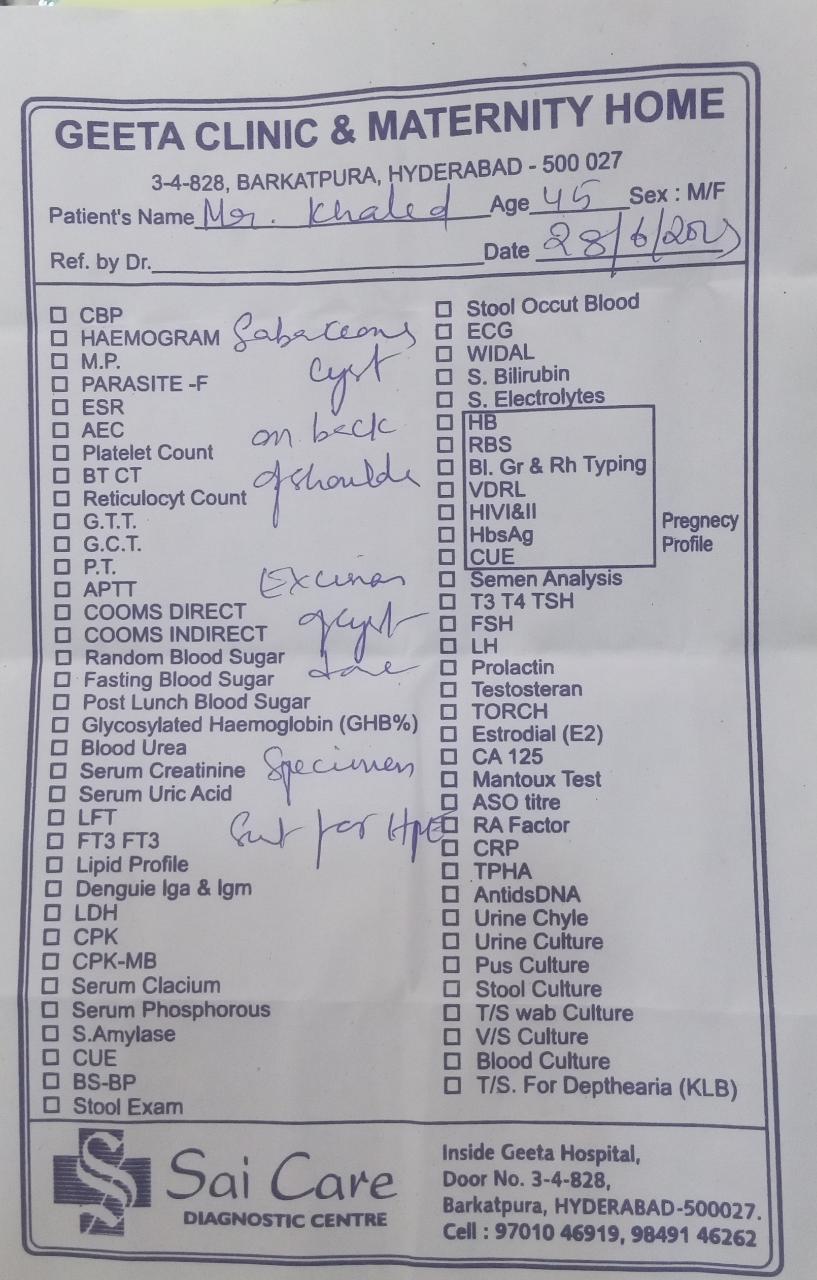 GEETA CLINIC & MATERNITY HOME
3-4-828, BARKATPURA, HYDERABAD - 500 027
Patient's Name Mr. Khaled Age 45 Sex : M/F
Ref. by Dr. Date 28/6/2023
CBP
HAEMOGRAM
M.P.
PARASITE -F
ESR
AEC
Platelet Count
BT CT
Reticulocyt Count
G.T.T.
G.C.T.
P.T.
APTT
COOMS DIRECT
COOMS INDIRECT
Random Blood Sugar
Fasting Blood Sugar
Post Lunch Blood Sugar
Glycosylated Haemoglobin (GHB%)
Blood Urea
Serum Creatinine
Serum Uric Acid
LFT
FT3 FT3
Lipid Profile
Denguie Iga & Igm
LDH
CPK
CPK-MB
Serum Clacium
Serum Phosphorous
S.Amylase
CUE
BS-BP
Stool Exam
Sabaceous
cyst
on back
of shoulde
Excision
of cyst
done
Specimen
Sent for HPE
Stool Occut Blood
ECG
WIDAL
S. Bilirubin
S. Electrolytes
HB
RBS
Bl. Gr & Rh Typing
VDRL
HIVI&II
HbsAg
CUE
Pregnecy
Profile
Semen Analysis
T3 T4 TSH
FSH
LH
Prolactin
Testosteran
TORCH
Estrodial (E2)
CA 125
Mantoux Test
ASO titre
RA Factor
CRP
TPHA
AntidsDNA
Urine Chyle
Urine Culture
Pus Culture
Stool Culture
T/S wab Culture
V/S Culture
Blood Culture
T/S. For Depthearia (KLB)
Sai Care
DIAGNOSTIC CENTRE
Inside Geeta Hospital,
Door No. 3-4-828,
Barkatpura, HYDERABAD-500027.
Cell : 97010 46919, 98491 46262